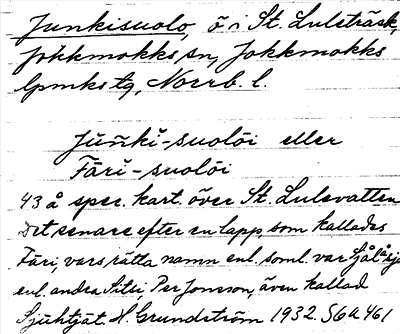 Junkisuolo, ö i St. Luleträsk,
Jokkmokks sn, Jokkmokks
lpmks tg, Norrb. l.
Juŋ̃ki-suolōi eller
Färi-suolōi
43 å spec. kart. över St. Lulevatten
Det senare efter en lapp, som kallades
Färi, vars rätta namn enl. soml. var
enl. andra Per Jonsson, även kallad
H. Grundström 1932. S6a 461